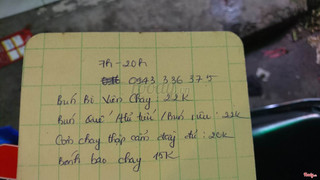 7h - 20h
0943 336 375
Bún Bò Viên Chay : 22K
Bún
/ Bún riêu : 22K
Cơm chay thập cẩm đầy đủ : 20K
Bánh bao chay 15K